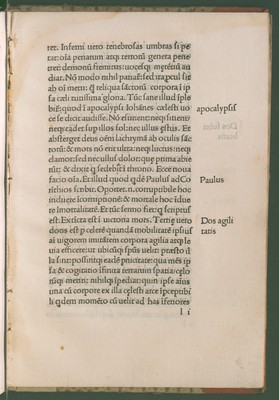 ret. Inferni uero tenebrosas umbras si pe
tat: oīa penarum atq; terrorū genera pene
tret: demonū fremitus: uoces
diat. Nō modo nihil
ab oī metu: & reliqua sāctorū corpora i ip
sa cœli tutissima gloria. Tūc sane illud īple
bit: quod i apocalypsi Iohānes cœlesti uo
ce se dicit audisse. Nō esurient: neq; sitient:
neq; cadet sup illos sol: nec ullus ęstus. Et
absterget deus oēm lachrymā ab oculis sāc
torū: & mors nō erit ultra: nec luctus: neq;
clamor: sed nec ullus dolor: quę prima abie
rūt: & dixit q sedebat ī throno. Ecce noua
facio oīa. Et illud quod qdē Paulus ad Co
rithios scribit. Oportet. n. corrupibile hoc
induere īcorruptionē: & mortale hoc īdu
ere immortalitatē. Et tūc sermo fiet: q scriptus
est: Exorta est i uictoria mors. Tertię uero
dotis est p celerē quandā mobilitatē ipsius
ai uigorem imitasem corpora agilia atq; le
uia efficere: ut ubicūq; spūs uelit: presto il
la sint: possintq; eadē pnicitate: qua mēs ip
sa & cogitatio ifinita terrarum spatia: cęlo
rūq; metiri: nihilq; ipediat: quin ipse aius
una cū corpore ex illa celesti arce īpceptibi
li qdem momēto cū uelit ad has iferiores
l i
apocalypsis
Paulus
Dos agili
tatis